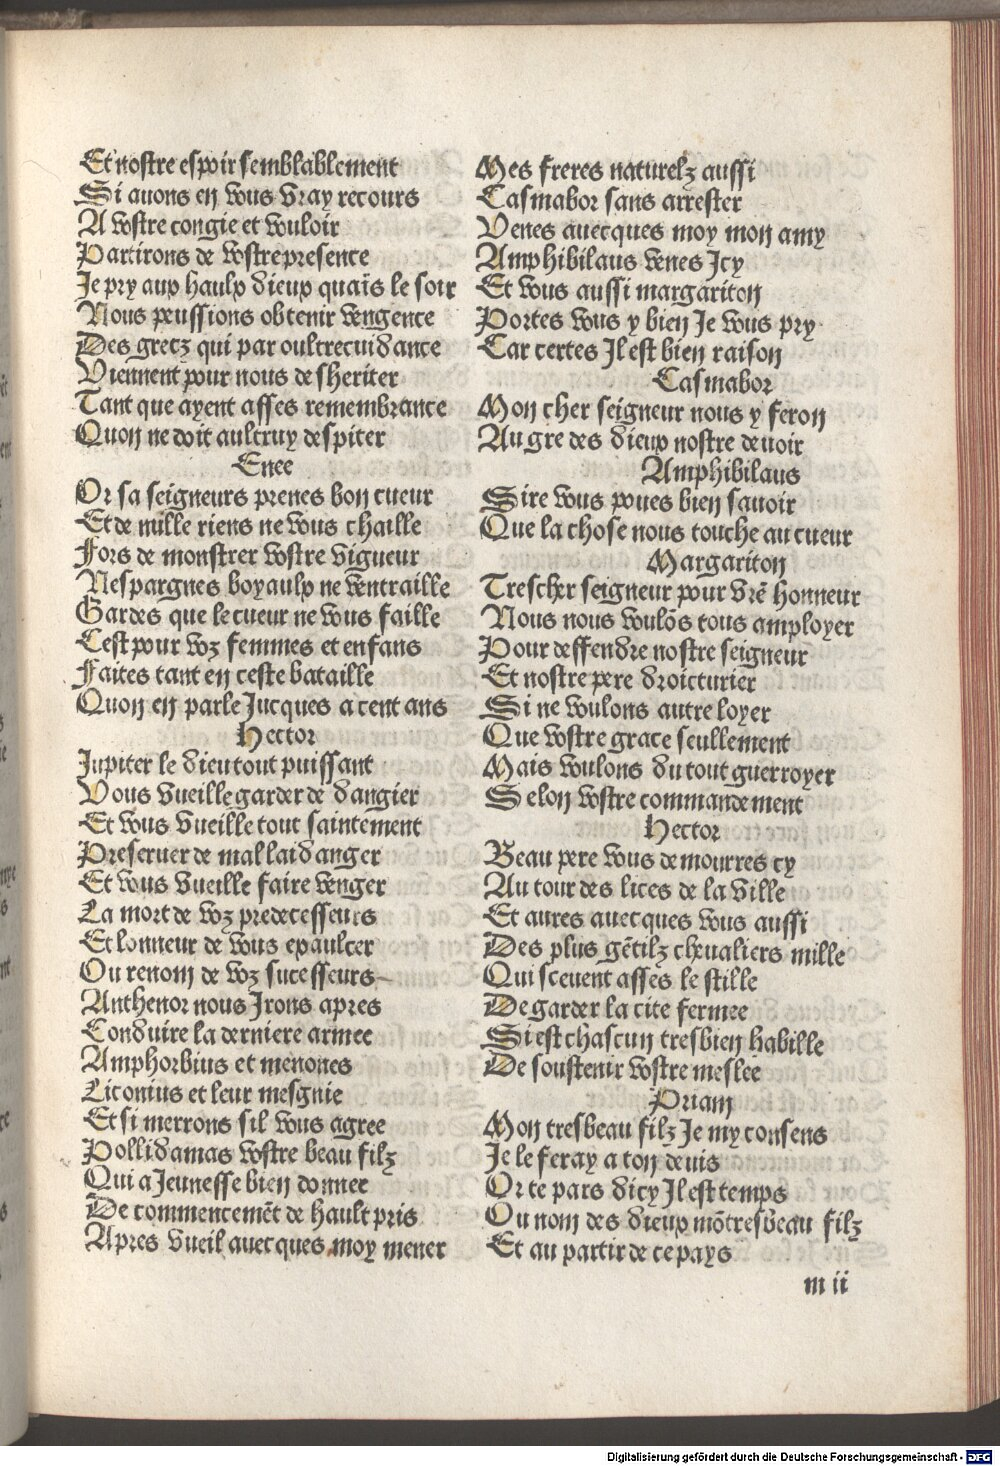 Et nostre espoir semblablement
Si auons en vous vray recours
A vostre congie et vouloir
Partirons de vostre presence
Je pry aux haulx dieux quais le soir
Nous peussions obtenir vengence
Des grecz qui par oultrecuidance
Viennent pour nous desheriter
Tant que ayent asses remembrance
Quon ne doit aultruy despiter
Enee
Or sa seigneurs prenes bon cueur
Et de mille riens ne vous chaille
Fors de monstrer vostre vigueur
Nespargnes boyaulx ne ventraille
Gardes que le cueur ne vous faille
Cest pour voz femmes et enfans
Faites tant en ceste bataille
Quon en parle Jucques a cent ans
Hector
Jupiter le dieu tout puissant
Vous vueille garder de dangier
Et vous vueille tout saintement
Preseruer de mal laidanger
Et vous vueille faire venger
La mort de voz predecesseurs
Et lonneur de vous epaulcer
Ou renom de voz sucesseurs
Anthenor nous Jrons apres
Conduire la derniere armee
Amphorbius et menones
Liconius et leur mesgnie
Et si merrons sil vous agree
Pollidamas vostre beau filz
Qui a Jeunesse bien donnee
De commencemēt de hault pris
Apres vueil auecques moy mener
Mes freres naturelz aussi
Casmabor sans arrester
Venes auecques moy mon amy
Amphibilaus venes Jcy
Et vous aussi margariton
Portes vous y bien Je vous pry
Car certes Jl est bien raison
Casmabor
Mon cher seigneur nous y feron
Au gre des dieux nostre deuoir
Amphibilaus
Sire vous poues bien sauoir
Que la chose nous touche au cueur
Margariton
Trescher seigneur pour vrē honneur
Nous nous voulōs tous amployer
Pour deffendre nostre seigneur
Et nostre pere droicturier
Si ne voulons autre loyer
Que vostre grace seullement
Mais voulons du tout guerroyer
Selon vostre commandement
Hector
Beau pere vous demourres cy
Au tour des lices de la ville
Et aures auecques vous aussi
Des plus gētilz cheualiers mille
Qui sceuent asses le stille
De garder la cite fermee
Si est chascun tresbien habille
De soustenir vostre meslee
Priam
Mon tresbeau filz Je my consens
Je le feray a ton deuis
Or te pars dicy Jl est temps
Ou nom des dieux mō tresbeau filz
Et au partir de ce pays
m ii
Digitalisierung gefördert durch die Deutsche Forschungsgemeinschaft - DFG